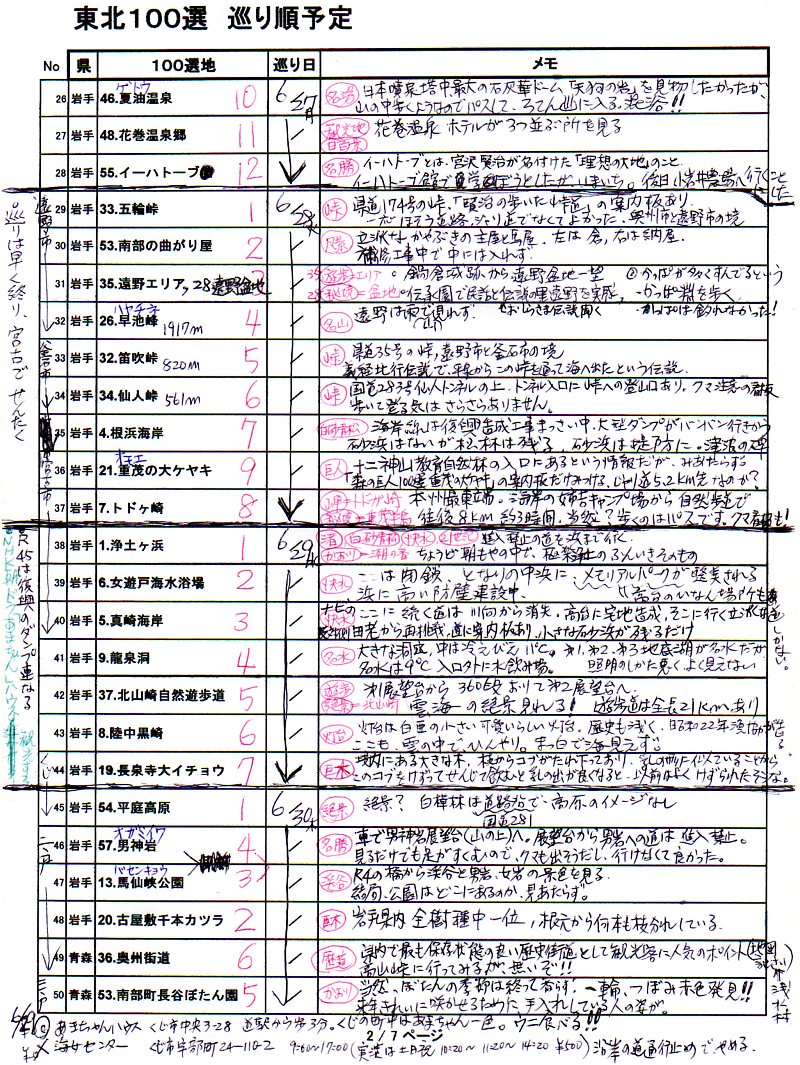 東北100選 巡り順予定
No 県 100選地 巡り日 メモ
26 岩手 46.夏油温泉 ゲトウ 10 6/27月 名湯 日本噴泉塔中最大の石灰華ドーム「天狗の岩」を見物したかったが、
山の中歩くようなのでパスして、ろてん に入る。混浴!!
27 岩手 48.花巻温泉郷 11 観光地 花巻温泉 ホテルが3つ並ぶ所を見る
28 岩手 55.イーハトーブ 12 名勝 イーハトーブとは、宮沢賢治が名付けた「理想の大地」のこと
イーハトーブ館で見学 ぼうとしたが、いまいち。後日小岩井農場へ行くことにした
29 岩手 33.五輪峠 1 6/28火 峠 県道174号の峠、「賢治の歩いた峠道」の案内板あり、
ほそう道路、ジャリ道でなくてよかった。奥州市と遠野市の境
30 岩手 53.南部の曲がり屋 2 立派な、かやぶきの主屋と馬屋。左は倉、右は納屋。
補修工事中で中には入れず。
31 岩手 35.遠野エリア, 28遠野盆地 3 35 遊歩エリア 。鍋倉城跡から遠野盆地一望 ◎かっぱが多くすんでるという
28 秘境=盆地 。伝承園で民話と伝説の里遠野を実感、かっぱ淵を歩く。
32 岩手 26.早池峰 ハヤチネ 1917m 4 名山 遠野は雨で見れず。 かっぱは釣れなかった!
33 岩手 32.笛吹峠 820m 5 峠 県道35号の峠、遠野市と釜石市の境
義経北行伝説で、平泉からこの峠を通って海へ出たという伝説。
34 岩手 34.仙人峠 561m 6 峠 国道283号仙人トンネルの上、トンネル入口に峠への登山口あり。クマ注意の看板
歩いて登る気はさらさらありません。
35 岩手 4.根浜海岸 7 白砂青松 海岸 は復興造成工事まっさい中、大型ダンプがバンバン行きかう
砂浜はないが松林は残る、砂浜は堤防に。津波の
36 岩手 21.重茂の大ケヤキ オモエ 9 巨人 十二神山教育自然林の入口にあるという情報だが、みあたらずる
「森の巨人100選重茂の大ケヤキ」の案内板だけみつける。じゃり道5.2km先なのか?
37 岩手 7.トドヶ崎 8 岬=トドヶ崎 本州最東端。海岸の姉吉キャンプ場から自然歩道で
往復8km 約3時間。当然?歩くのはパスです。クマ看板も!
38 岩手 1.浄土ヶ浜 1 6/29水 渚 白砂青松 快水 21世紀 進入禁止の道を浜まで行く。
かおり=潮の香 ちょうど朝もやの中で、極楽浄土のふんいきそのもの
39 岩手 6.女遊戸海水浴場 2 快水 ここは閉鎖、となりの中浜に、メモリアルパークが整美される
浜に高い防壁建設中。 高台のひなん場所も
40 岩手 5.真崎海岸 3 快水 ナビの ここに続く道は川向から消失、高台に宅地造成、そこに行く立派な道しかない。
田老から再挑戦、道に案内板あり、小さな石砂浜が残るだけ
41 岩手 9.龍泉洞 4 名水 大きな洞窟、中は冷えびえ11℃。第1,第2,第3地底湖が名水だが
名水は9℃ 入口外に水飲み場。 照明のしかた悪くよく見えない
42 岩手 37.北山崎自然遊歩道 5 遊歩 絶景=北山崎 第1展望台から360段おりて第2展望台へ。
雲海の絶景見れる! 遊歩道は全長21kmあり
43 岩手 8.陸中黒崎 6 灯台 灯台は白亜の小さい可愛いらしい灯台。歴史も浅く、昭和22年
ここも、雲の中で、ひんやり。まっ白で海見えず。
44 岩手 19.長泉寺大イチョウ 7 巨木 境内にある大きな木、枝からコブがたれ下っており、乳の形に似ていることから
このコブをけずってせんじて飲むと乳の出が良くなると、以前はよくけずられたそうな。
45 岩手 54.平庭高原 1 6/30木 絶景 絶景? 白樺林は道路沿で、高原のイメージなし
国道281
46 岩手 57.男神岩 オガミイワ 4 名勝 車で男神岩展望台(山の上)へ。展望台から男岩への道は進入禁止。
見るだけでも足がすくむので、クマも出そうだし、行けなくて良かった。
47 岩手 13.馬仙峡公園 バセンキョウ 3 渓谷 R4の橋から渓谷と男岩、女岩の景色を見る
結局、公園はどこにあるのか、見あたらず。
48 岩手 20.古屋敷千本カツラ 2 巨木 岩手県内全樹種中一位、根元から何本も枝分れしている。
49 青森 36.奥州街道 6 歴道 県内で最も保存状態の良い歴史街道として観光客に人気のポイント
高山峠に行ってみるが、無いぞ!!
50 青森 53.南部町長谷ぼたん園 5 かおり 当然、ぼたんの季節は終って居らず。一輪、つぼみ赤色発見!!
来年きれいに咲かせるために手入れしている人の姿が。
遠野市
釜石市
宮古市
くじ
二戸
三戸
。巡りは早く終り、宮古でせんたく
。R45は復興のダンプ連なる
。NHK朝ドラ「あまちゃん」ハウス
6/29 ◎ あまちゃんハウス くじ市中央3-28 道駅から歩3分。くじの町中はあまちゃん一色。ウニ食べる!!
2 / 7 ページ
海女センター くじ市宇部町24-110-2 9:00~17:00 (実演は土日祝 10:20~ 11:20~ 14:20 ¥500) 沿岸の道通行止めでやめる。